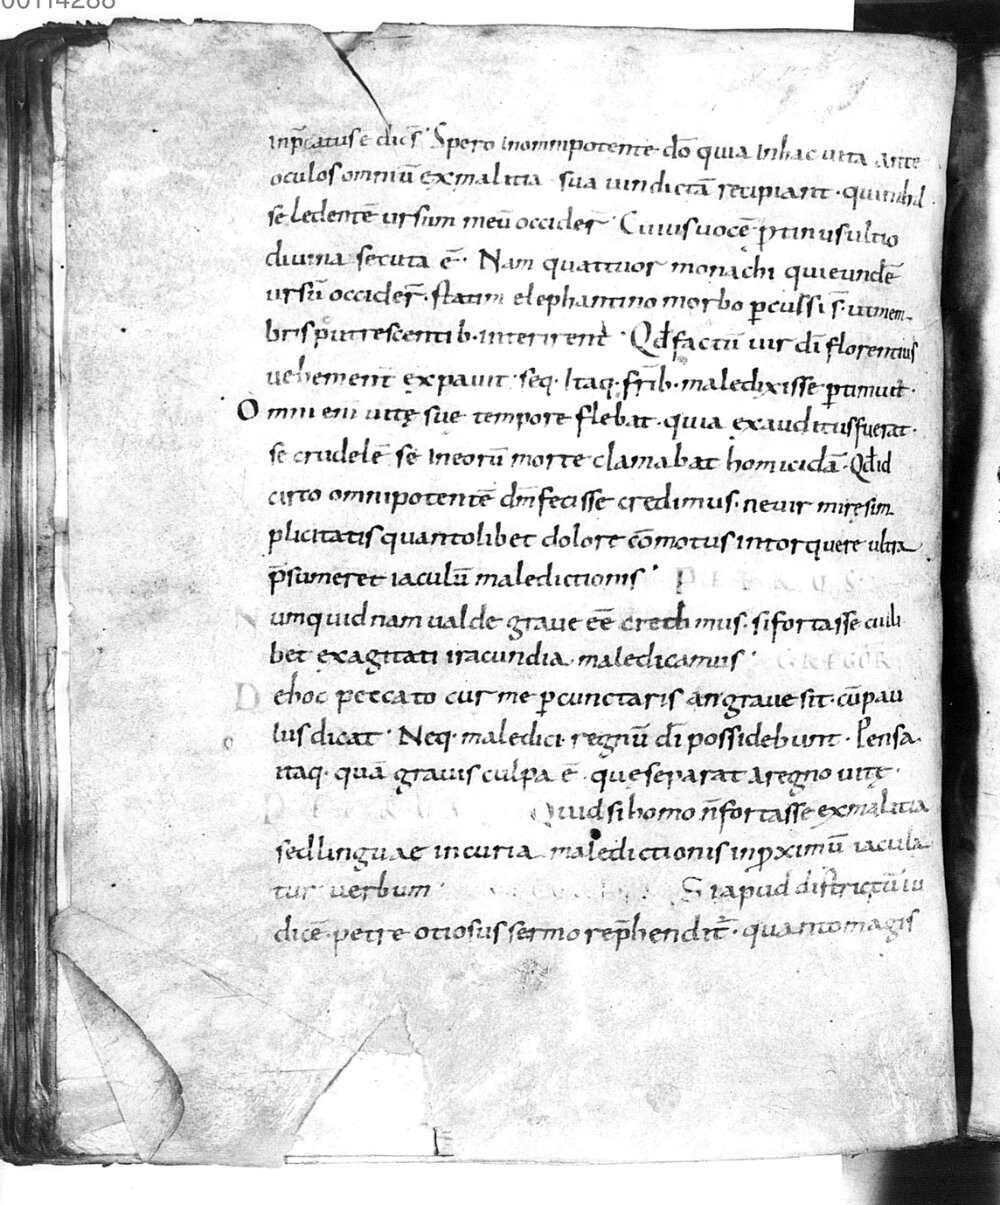 00114288
inp̄catus ē dicē̄s· Spero inomnipotente dō quia inhac uita ante
oculos omniū exmalitia sua uindictā recipiant· quinihil
se ledentē ursum meū occider̄· Cuius uocē ꝓtinus ultio
diuina secuta ē· Nam quattuor monachi quieundē
ursū occider̄· statim elephantino morbo ꝑcussi s̄· utmem
bris putrescentib· interirent· Qđ factū uir dī florentius
uehement̄ expauit· seq· Itaq· frīb· maledixisse ꝑtimuit·
Omni enī uitę sue tempore flebat· quia exauditus fuerat·
se crudelē se ineorū morte clamabat homicidā· Qđ id
circo omnipotentē dm̄ fecisse credimus· ne uir mirę sim
plicitatis quantolibet dolore cōmotus intorquere ultra
p̄sumeret iaculū maledictionis· PETRUS
Numquidnam ualde graue eē credimus· si fortasse cuili
bet exagitati iracundia maledicamus· GREGOR
Dehoc peccato cur me ꝑcunctaris angraue sit· cū pau
lus dicat· Neq· maledici regnū dī possidebunt· Pensa
itaq· quā grauis culpa ē· que separat aregno uitę·
PETRUS Quid si homo n̄ fortasse exmalitia
sedlinguae incuria maledictionis inꝓximū iacula
tur uerbum· Si apud districtū iu
dicē petre otiosus sermo rep̄hendit̄· quantomagis